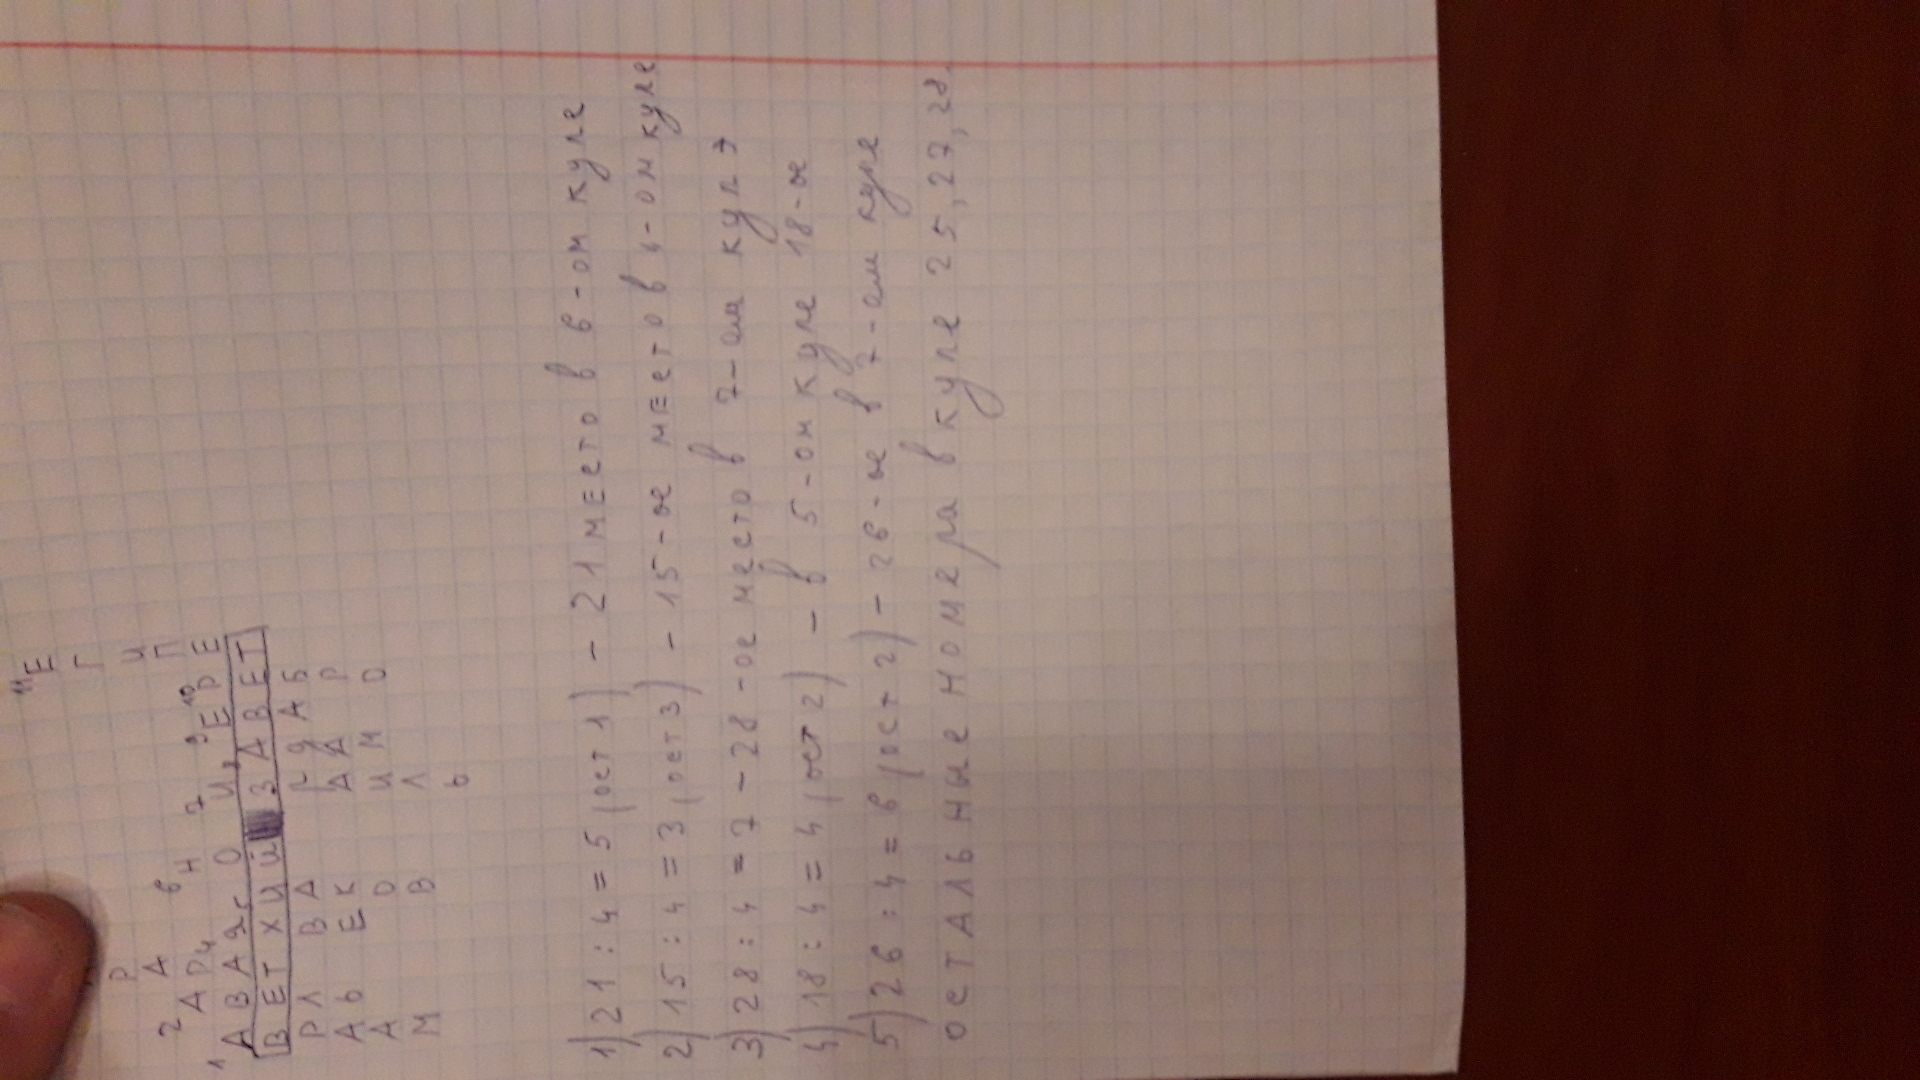 11
Е
Г
Р И
2 А 6 Н П
А Р 4 7 9 10 Е
1 А В А г О И 8 Е Р Е
ВЕТХИЙ ЗАВЕТ
Р Л В А Г Д А Б
А Ь Е К А А Р
А О И М О
М В Л
Ь
1) 21 : 4 = 5 (ост 1) - 21 место в 6-ом купе
2) 15 : 4 = 3 (ост 3) - 15-ое место в 4-ом купе
3) 28 : 4 = 7 - 28-ое место в 7-ом купэ
4) 18 : 4 = 4 (ост 2) - в 5-ом купе 18-ое
5) 26 : 4 = 6 (ост 2) - 26-ое в 7-ом купе
остальные номера в купе 25, 27, 28.